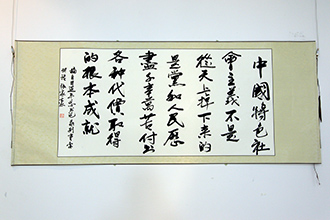 中國特色社
會主義不是
從天上掉下来的
是黨和人民歷
盡千辛萬苦付出
各种代價取得
的根本成就